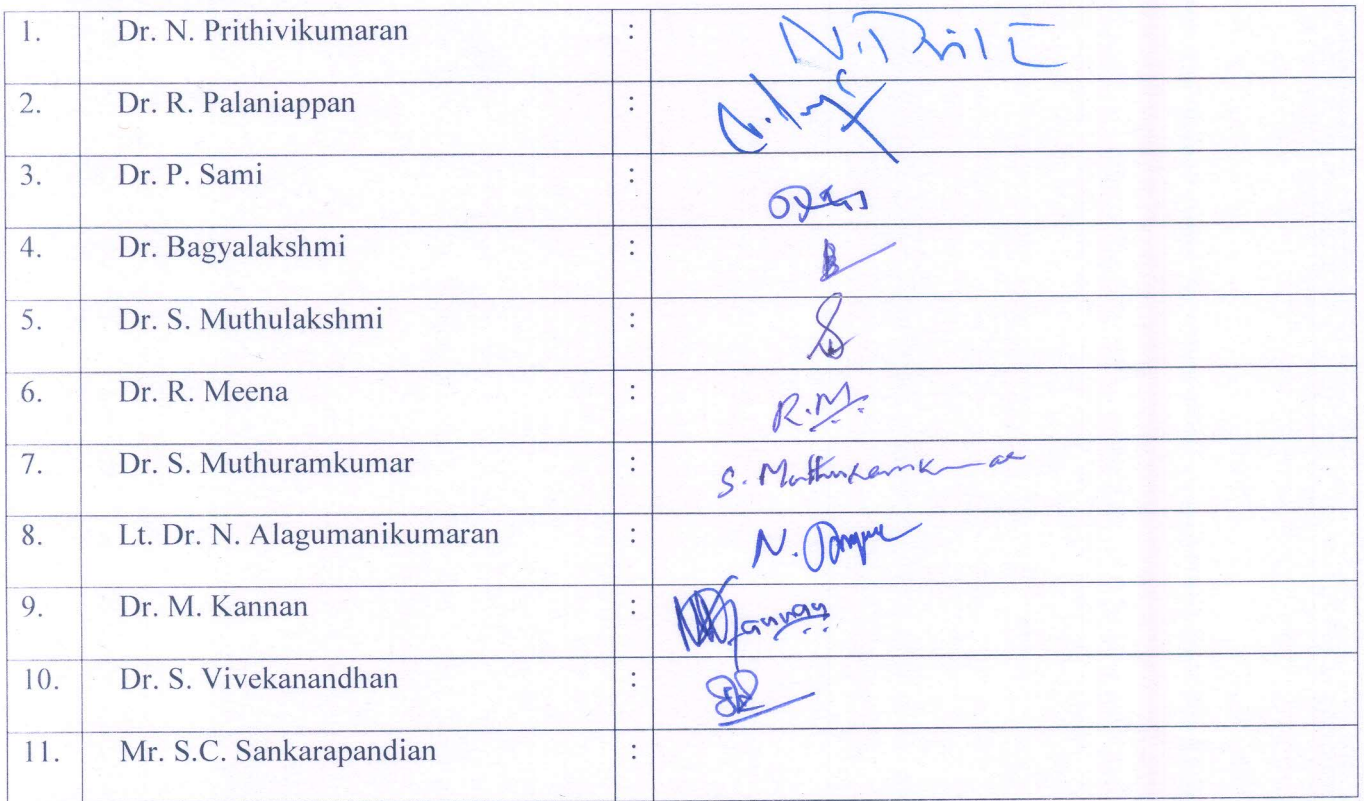 1. Dr. N. Prithivikumaran :
2. Dr. R. Palaniappan :
3. Dr. P. Sami :
4. Dr. Bagyalakshmi :
5. Dr. S. Muthulakshmi :
6. Dr. R. Meena : R.M.
7. Dr. S. Muthuramkumar : S. Muthuramkumar
8. Lt. Dr. N. Alagumanikumaran :
9. Dr. M. Kannan :
10. Dr. S. Vivekanandhan :
11. Mr. S.C. Sankarapandian :